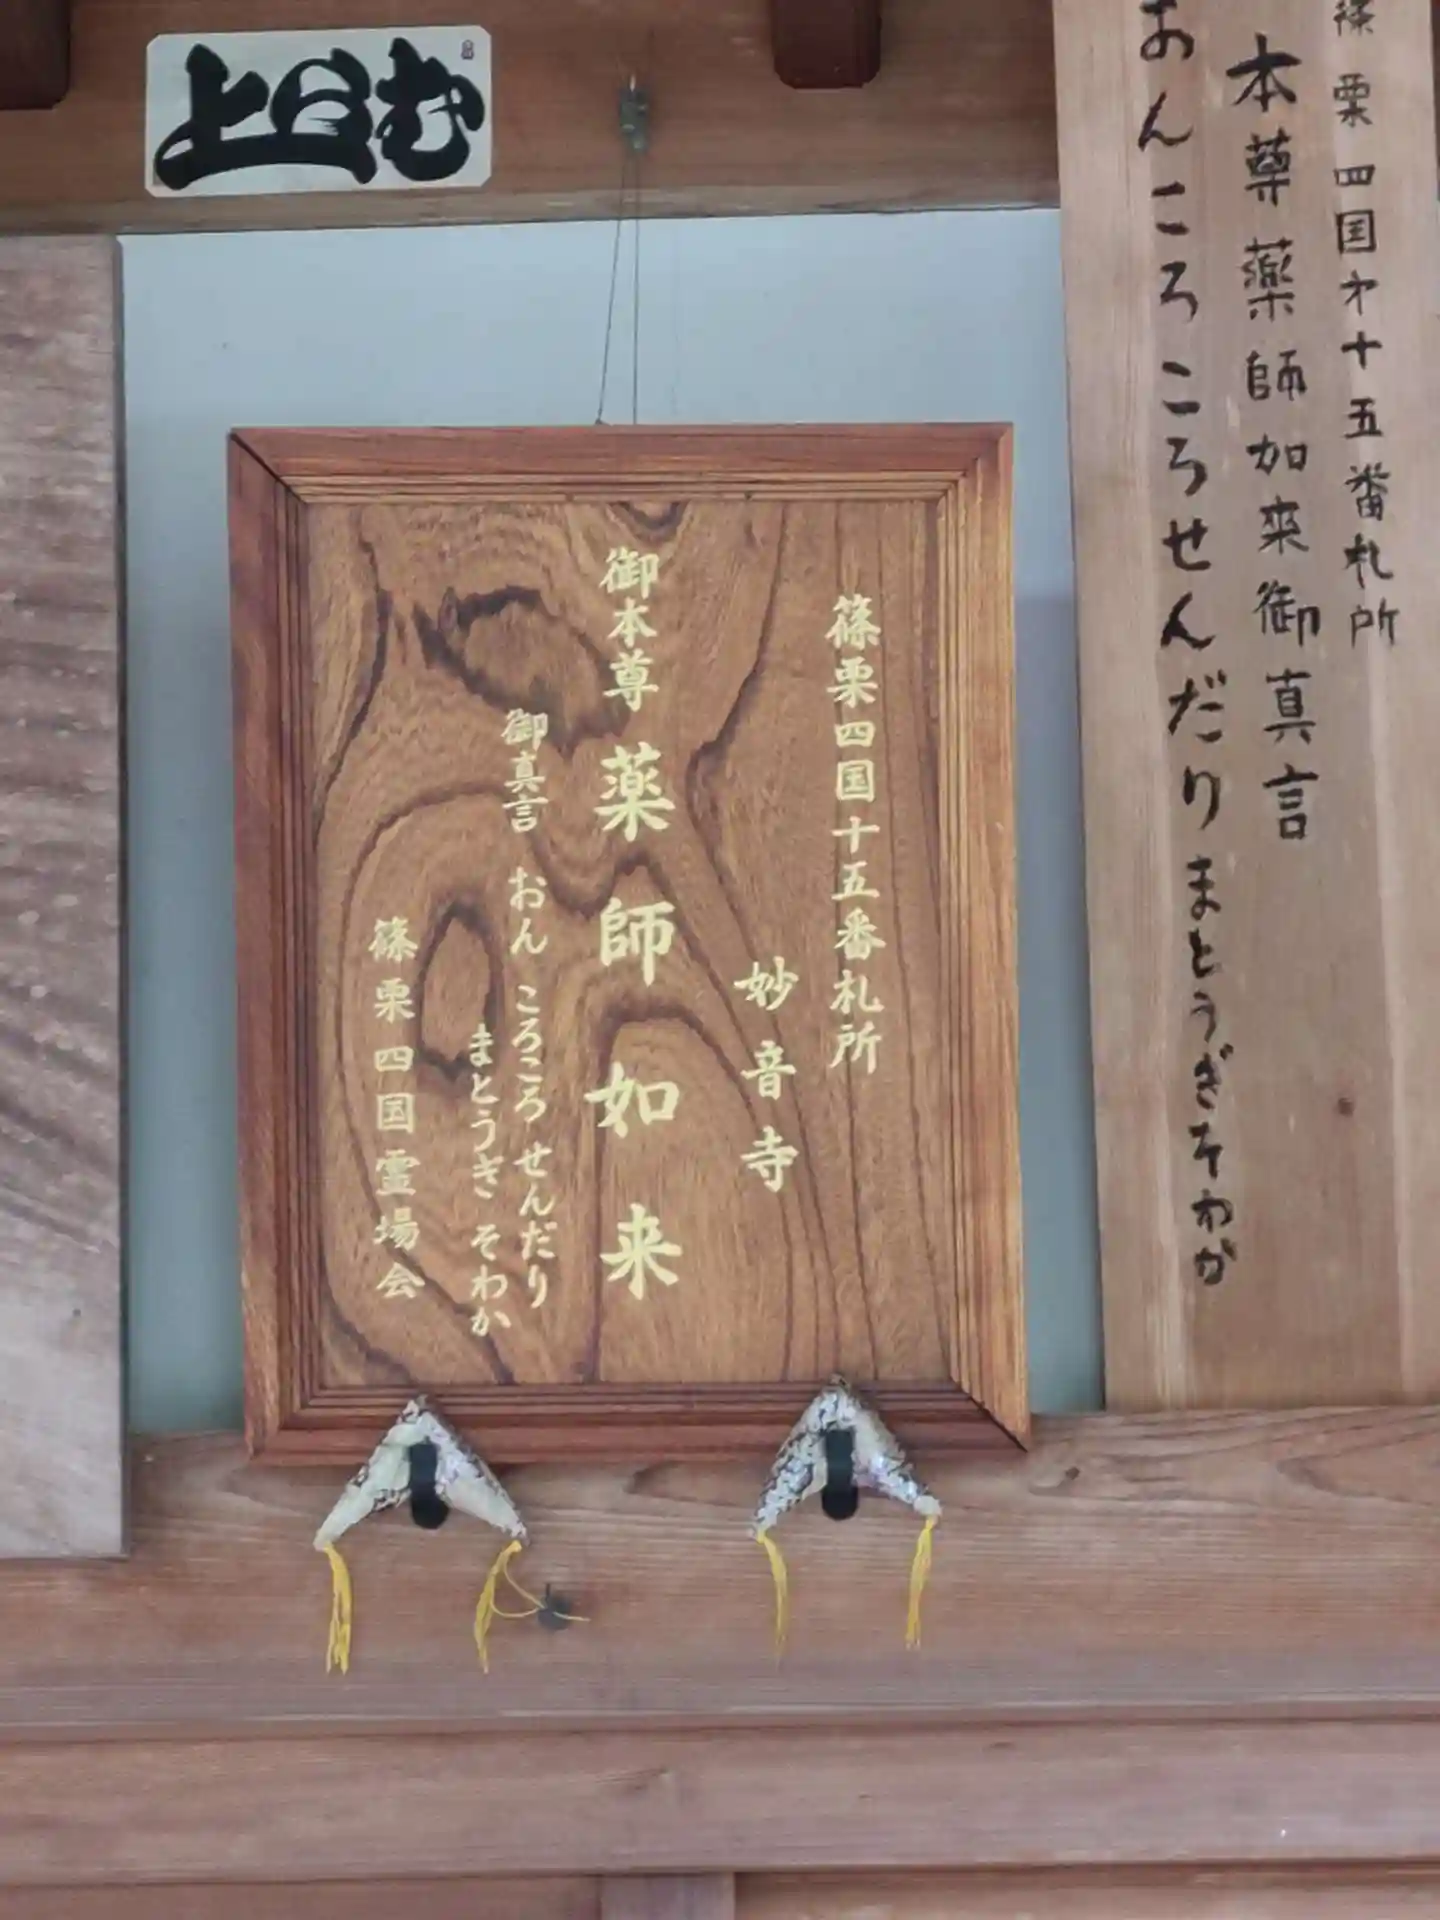 篠栗四国才十五番札所
本尊薬師加来御真言
おんころころせんだりまとうぎそわか
篠栗四国十五番札所
妙音寺
御本尊 薬師如来
御真言 おん ころころ せんだり
まとうぎ そわか
篠栗四国霊場会